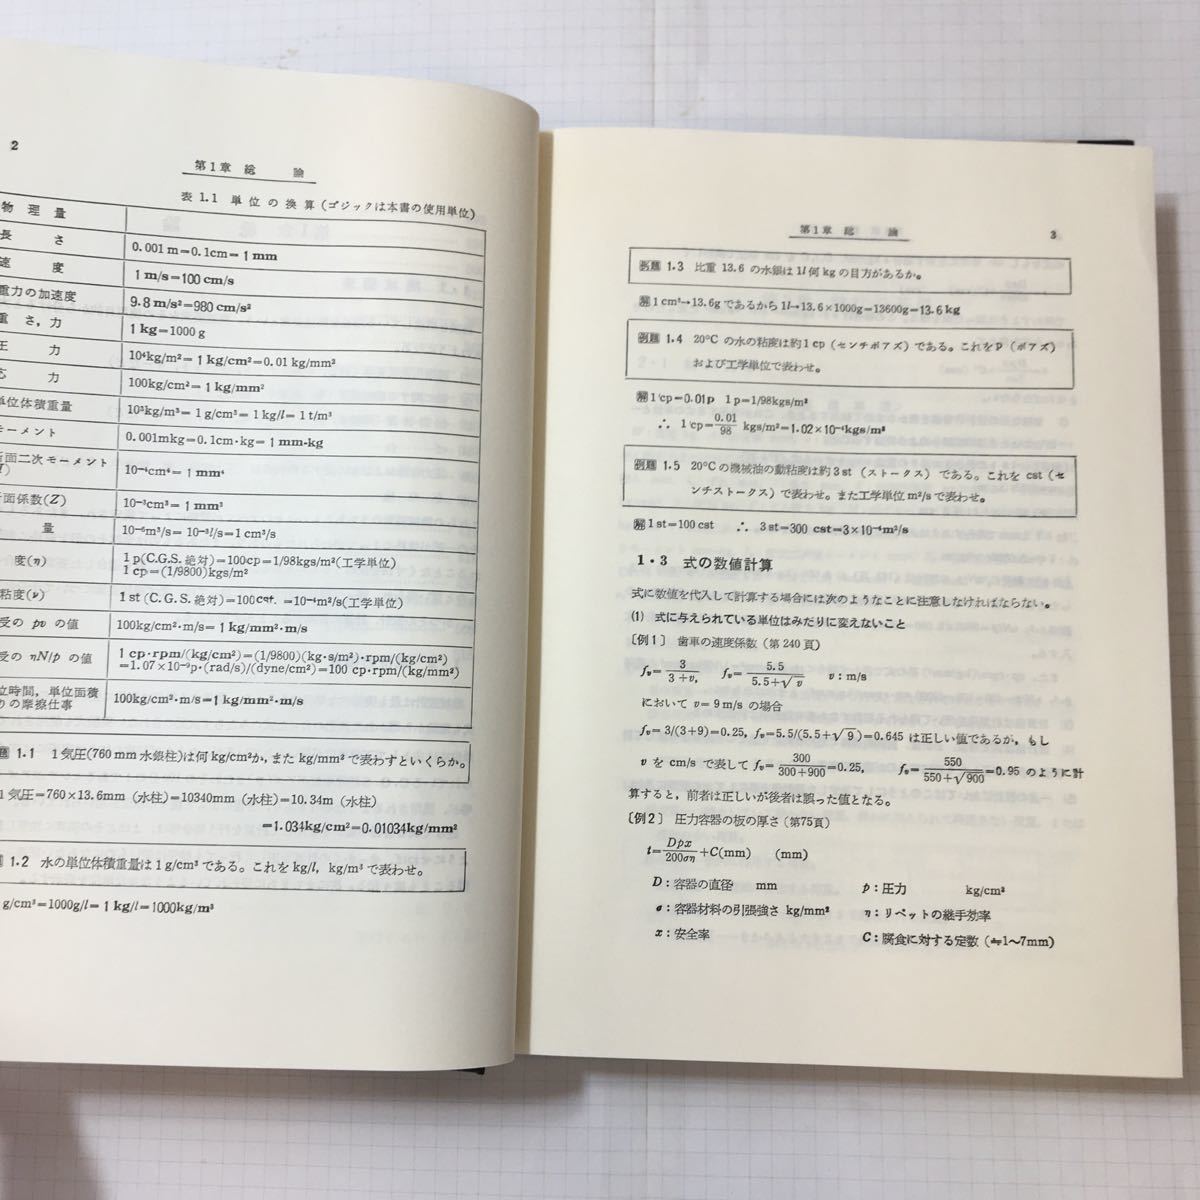 2
第1章 総 論
表 1.1 単位の換算(ゴジックは本書の使用単位)
物理量
長 さ 0.001 m=0.1cm=1 mm
速 度 1 m/s=100 cm/s
重力の加速度 9.8 m/s²=980 cm/s²
重さ,力 1 kg=1000 g
圧 力 10⁴kg/m²=1 kg/cm²=0.01 kg/mm²
応 力 100kg/cm²=1 kg/mm²
単位体積重量 10³kg/m³=1 g/cm³=1 kg/l=1 t/m³
モーメント 0.001mkg=0.1cm·kg=1 mm-kg
面二次モーメント 10⁻⁴cm⁴=1 mm⁴
面係数(Z) 10⁻³cm³=1 mm³
量 10⁻⁶m³/s=10⁻³l/s=1 cm³/s
度(η) 1 p(C.G.S. 絶対)=100cp=1/98kgs/m²(工学単位)
1 cp=(1/9800)kgs/m²
粘度(ν) 1 st (C.G.S. 絶対)=100cst. =10⁻⁴m²/s(工学単位)
受の pv の値 100kg/cm²·m/s=1 kg/mm²·m/s
受の ηN/p の値 1 cp·rpm/(kg/cm²)=(1/9800)(kg·s/m²)·rpm/(kg/cm²)
=1.07×10⁻⁹p·(rad/s)/(dyne/cm²)=100 cp·rpm/(kg/mm²)
位時間,単位面積
りの摩擦仕事 100kg/cm²·m/s=1 kg/mm²·m/s
題 1.1 1気圧(760 mm 水銀柱)は何 kg/cm²か,また kg/mm² で表わすといくらか。
1気圧=760×13.6mm (水柱)=10340mm (水柱)=10.34m (水柱)
=1.034kg/cm²=0.01034kg/mm²
1.2 水の単位体積重量は1 g/cm³ である。これを kg/l, kg/m³ で表わせ。
g/cm³=1000g/l=1 kg/l=1000kg/m³
第1章 総 論
3
例題 1.3 比重 13.6 の水銀は 1l 何 kg の目方があるか。
解 1 cm³→13.6g であるから 1l→13.6×1000g=13600g=13.6 kg
例題 1.4 20°C の水の粘度は約1 cp (センチポアズ) である。これをP (ポアズ)
および工学単位で表わせ。
解 1 cp=0.01p 1 p=1/98kgs/m²
∴ 1 cp=0.01/98 kgs/m²=1.02×10⁻⁴kgs/m²
例題 1.5 20°C の機械油の動粘度は約3 st (ストークス) である。これを cst (セ
ンチストークス) で表わせ。また工学単位 m²/s で表わせ。
解 1 st=100 cst ∴ 3 st=300 cst=3×10⁻⁴m²/s
1・3 式の数値計算
式に数値を代入して計算する場合には次のようなことに注意しなければならない。
(1) 式に与えられている単位はみだりに変えないこと
〔例1〕 歯車の速度係数 (第 240 頁)
fᵥ=3/(3+v), fᵥ=5.5/(5.5+√v) v:m/s
において v=9 m/s の場合
fᵥ=3/(3+9)=0.25, fᵥ=5.5/(5.5+√9)=0.645 は正しい値であるが,もし
v を cm/s で表して fᵥ=300/(300+900)=0.25, fᵥ=550/(550+√900)=0.95 のように計
算すると,前者は正しいが後者は誤った値となる。
〔例2〕 圧力容器の板の厚さ (第75頁)
t=Dpx/200ση+C(mm) (mm)
D:容器の直径 mm p:圧力 kg/cm²
σ:容器材料の引張強さ kg/mm² η:リベットの継手効率
x:安全率 C:腐食に対する定数 (≒1〜7mm)